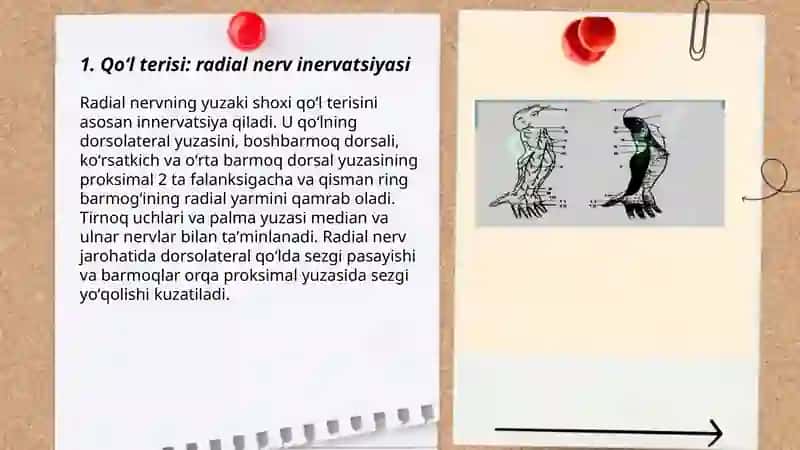 1. Qo‘l terisi: radial nerv inervatsiyasi
Radial nervning yuzaki shoxi qo‘l terisini
asosan innervatsiya qiladi. U qo‘lning
dorsolateral yuzasini, boshbarmoq dorsali,
ko‘rsatkich va o‘rta barmoq dorsal yuzasining
proksimal 2 ta falanksigacha va qisman ring
barmog‘ining radial yarmini qamrab oladi.
Tirnoq uchlari va palma yuzasi median va
ulnar nervlar bilan ta’minlanadi. Radial nerv
jarohatida dorsolateral qo‘lda sezgi pasayishi
va barmoqlar orqa proksimal yuzasida sezgi
yo‘qolishi kuzatiladi.